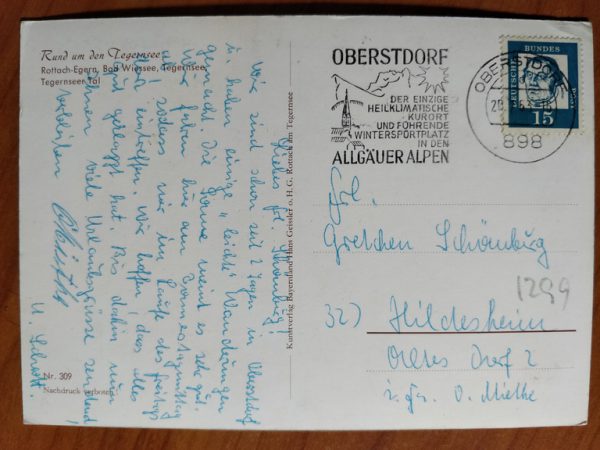 Rund um den Tegernsee
Rottach-Egern, Bad Wiessee, Tegernsee
Tegernseer Tal
Liebes Frl. Schönburg!
Wir sind schon seit 2 Tagen in Oberstdorf
u. haben einige "leichte" Wanderungen
gemacht. Die Sonne meint es sehr gut.
Wir fahren hier am Donnerstagmittag
ab, sodass wir im Laufe des Freitags
dort eintreffen. Wir hoffen, dass alles
gut geklappt hat. Bis dahin nun
Ihnen viele Urlaubsgrüsse sendend
verbleiben
u. Schott.
Nr. 309
Nachdruck verboten
Kunstverlag Bayernland Hans Geissler o.H.G. Rottach am Tegernsee
OBERSTDORF
DER EINZIGE
HEILKLIMATISCHE
KURORT
UND FÜHRENDE
WINTERSPORTPLATZ
IN DEN
ALLGÄUER ALPEN
OBERSTDORF
898
DEUTSCHE BUNDESPOST
15
Frl.
Gretchen Schönburg
1299
32) Hildesheim
Altes Dorf 2
b. Fr. O. Mielke